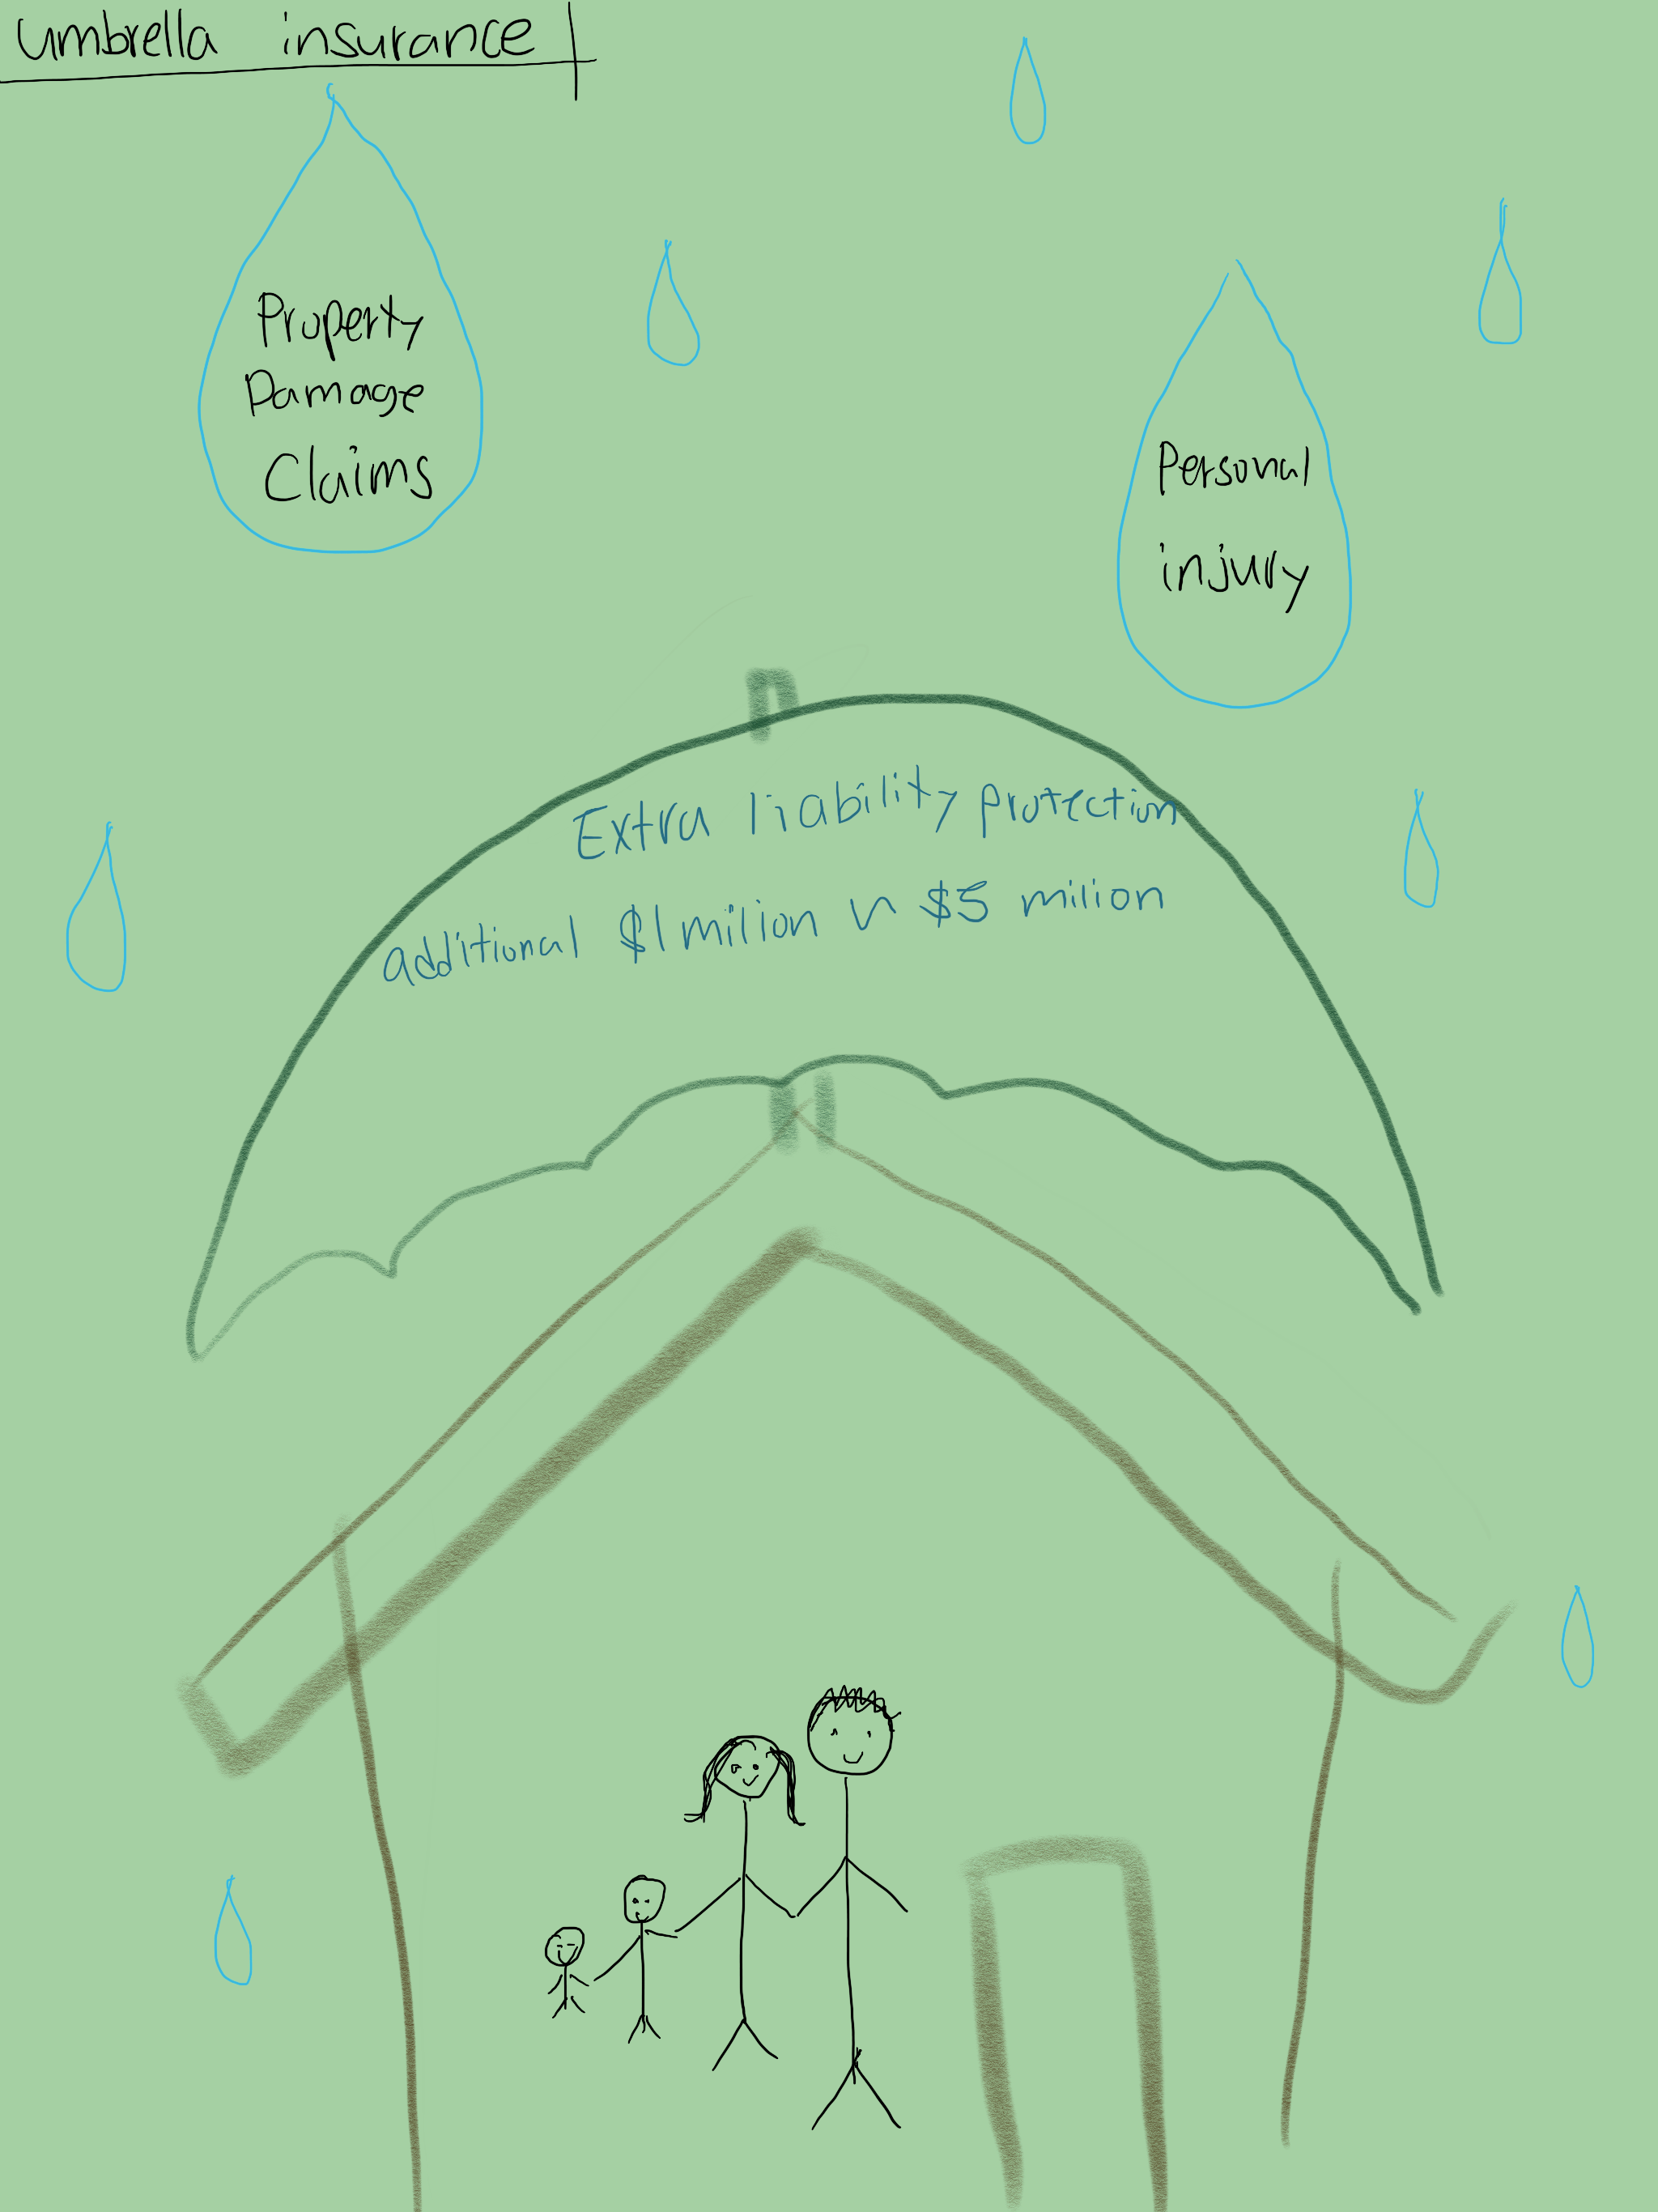 Umbrella insurance
Property
Damage
Claims
Personal
injury
Extra liability protection
additional $1 milion ~ $5 milion